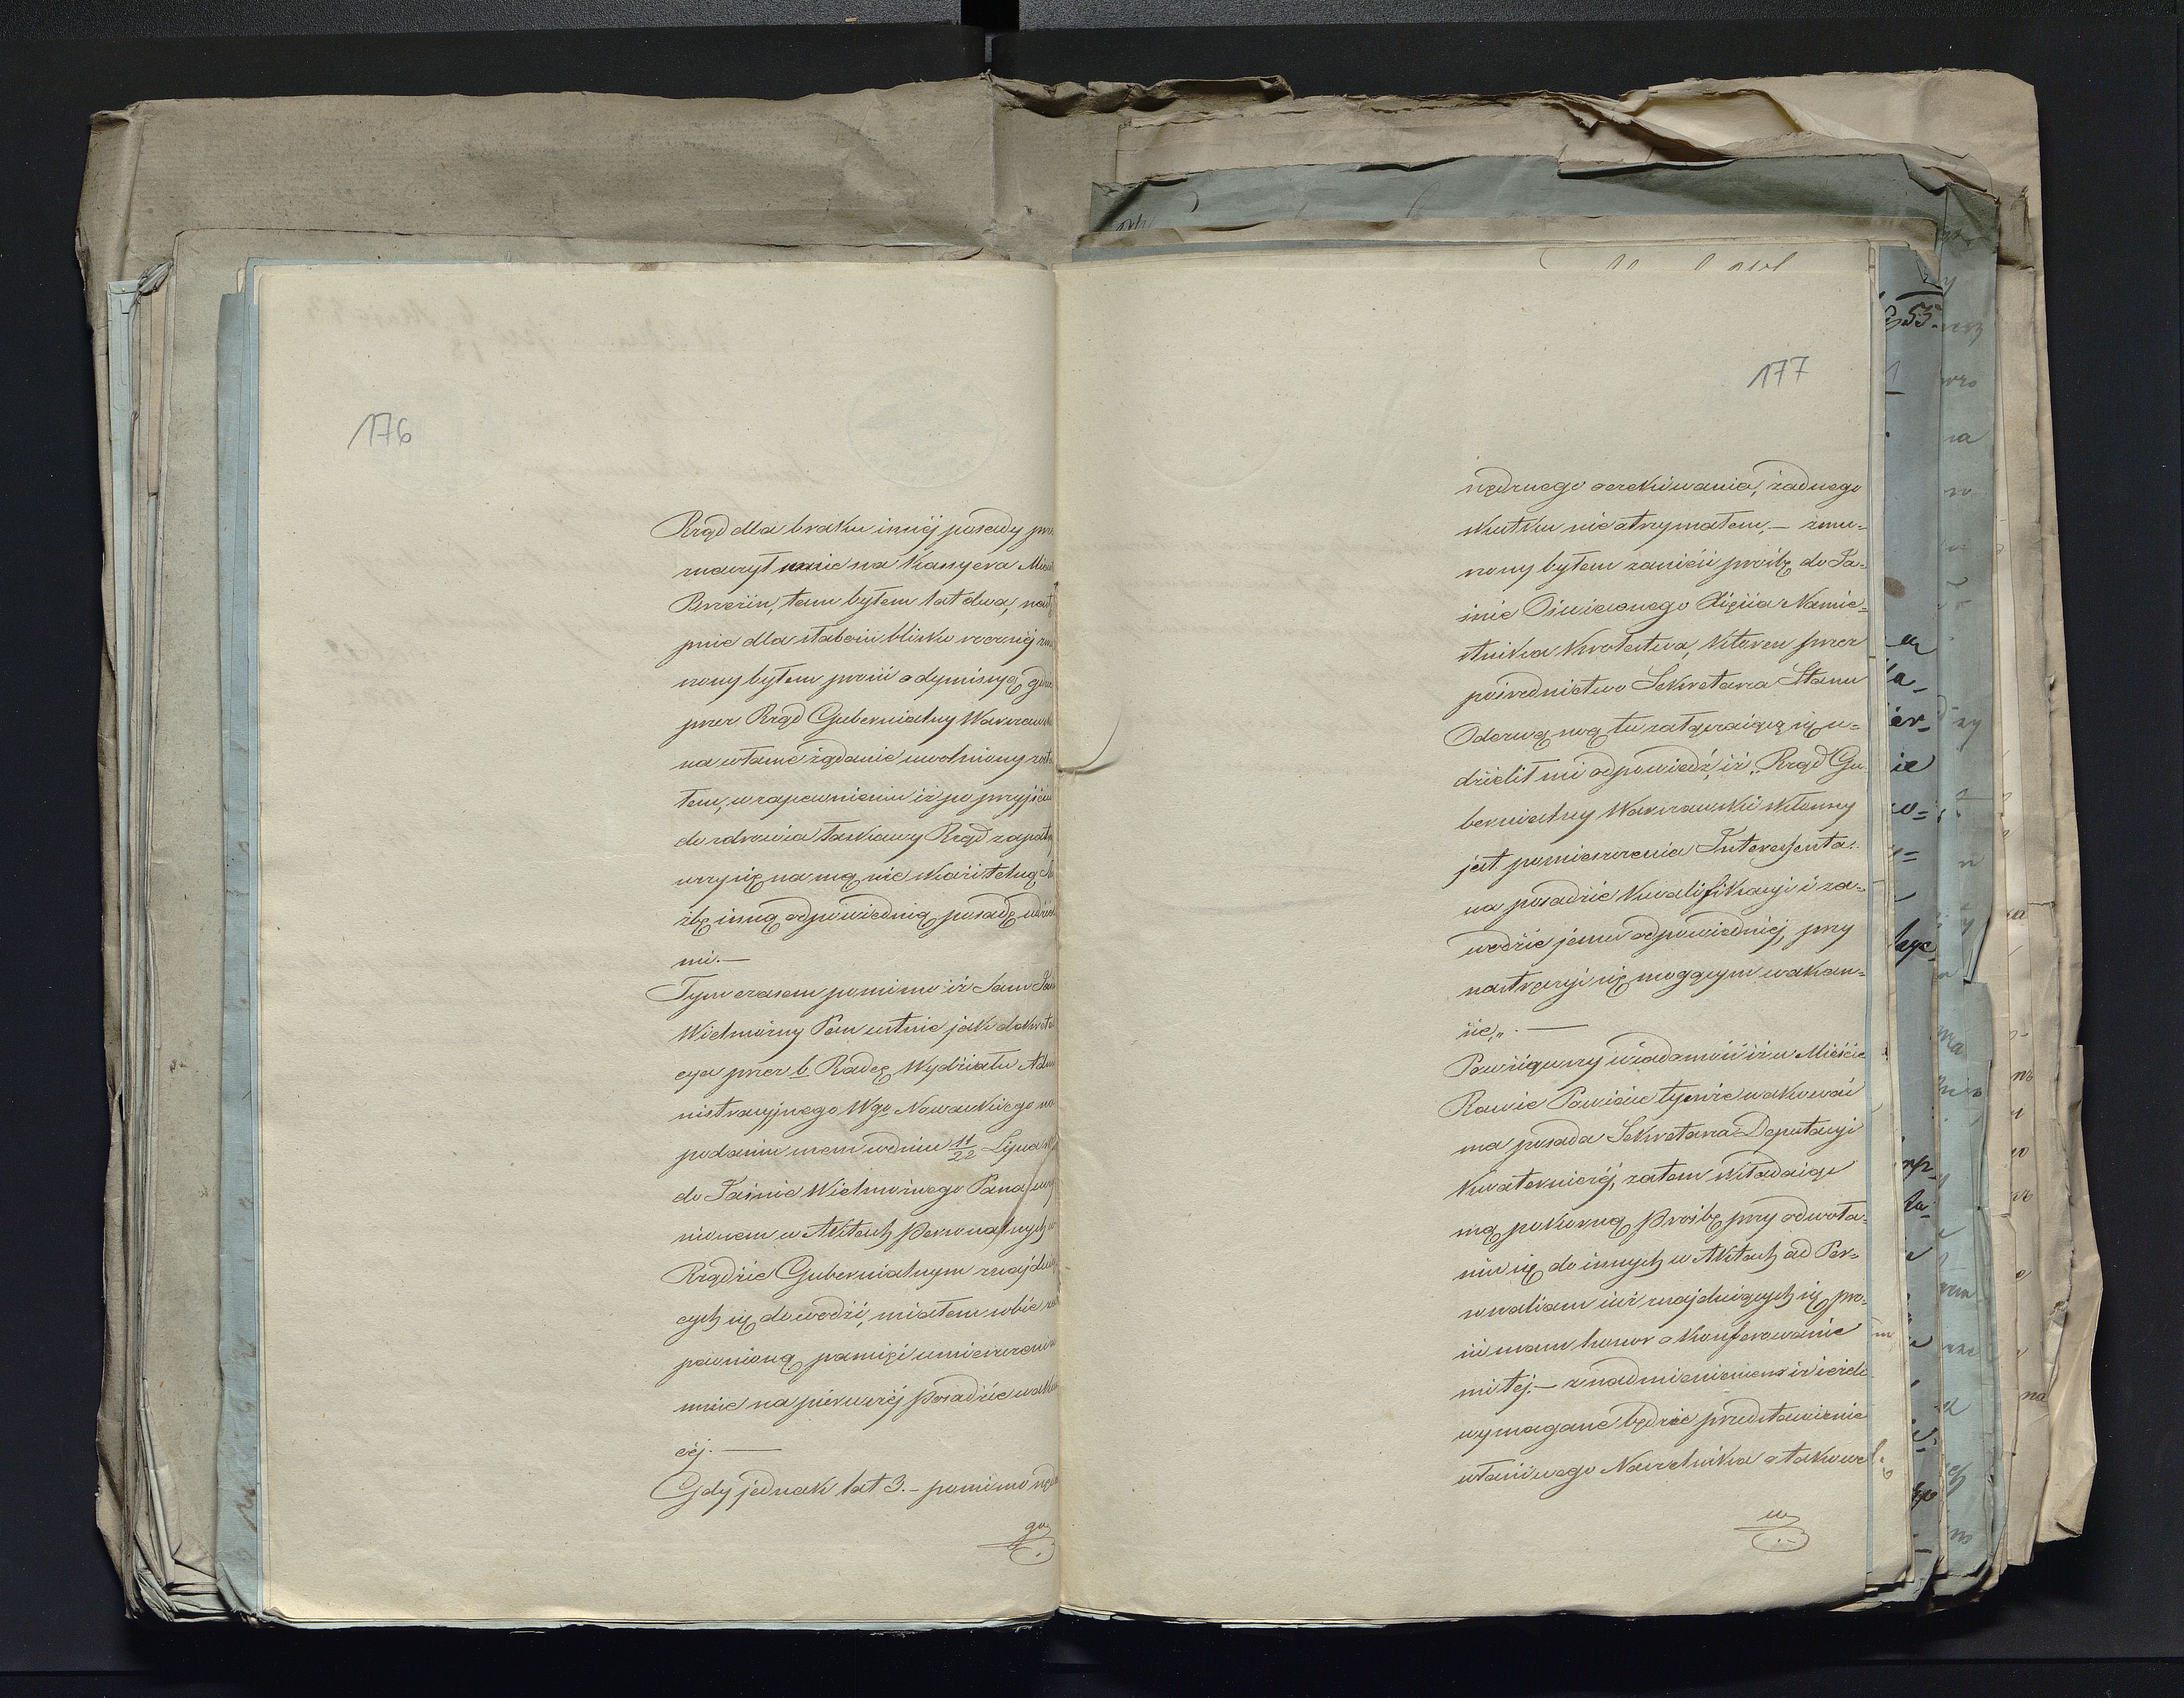 176
Rząd dla braku innéj posady prze
znaczył mnie na Kassyera Miasta
Brzezin, tam byłem lat dwa, nastę
pnie dla słabości blisko rocznéj zmu
szony byłem prosić o dymissyą, gdzie
przez Rząd Gubernialny Warszawski
na własne żądanie uwolniony zosta
łem, w zapewnieniu iż po przyjściu
do zdrowia łaskawy Rząd zapatrz
ywszy się na mą nie skazitelną Słu
żbę inną odpowiednią posadę udzieli
mi.—
Tymczasem pomimo iż Sam Jaśnie
Wielmożny Pan ustnie jako dekreta
cya przez b. Radcę Wydziału Admi
nistracyjnego Wgo Nowackiego na
podaniu mem w dniu 11/22 Lipca
do Jaśnie Wielmożnego Pana
nionem w Aktach Personalnych w
Rządzie Gubernialnym znajdują
cych się dowodzi, miałem sobie za
pewnioną pamięć umieszczenia
mnie na piérwszéj posadzie wakują
céj.—
Gdy jednak lat 3.— pomimo
go
177
nędznego oczekiwania, żadnego
skutku nie otrzymałem,— zmu=
szony byłem zanieść prośbę do Ja=
śnie Oświeconego Xięcia Namie=
stnika Królestwa, Któren przez
pośrednictwo Sekretarza Stanu
Odezwą swą tu załączającą się u=
dzielił mi odpowiedź, iż „Rząd Gu=
bernialny Warszawski skłonny
jest pomieszczenia Interessenta
na posadzie kwalifikacyi i za=
wodzie jemu odpowiedniéj, przy
nastręczyć się mogącym wakan=
sie„.—
Powziąwszy wiadomość iż w Mieście
Rawie Powiecie tymże wakować
ma posada Sekretarza Deputacyi
Kwaterniczéj, zatem składając
mą pokorną prośbę przy odwoła=
niu się do innych w Aktach ad Per=
sonaliam już znajdujących się, pro=
sić mam honor o konferowanie
mi téj.— z nadmienieniem iż jeżeli
wymagane będzie przedstawienie
właściwego Naczelnika o takowe
u